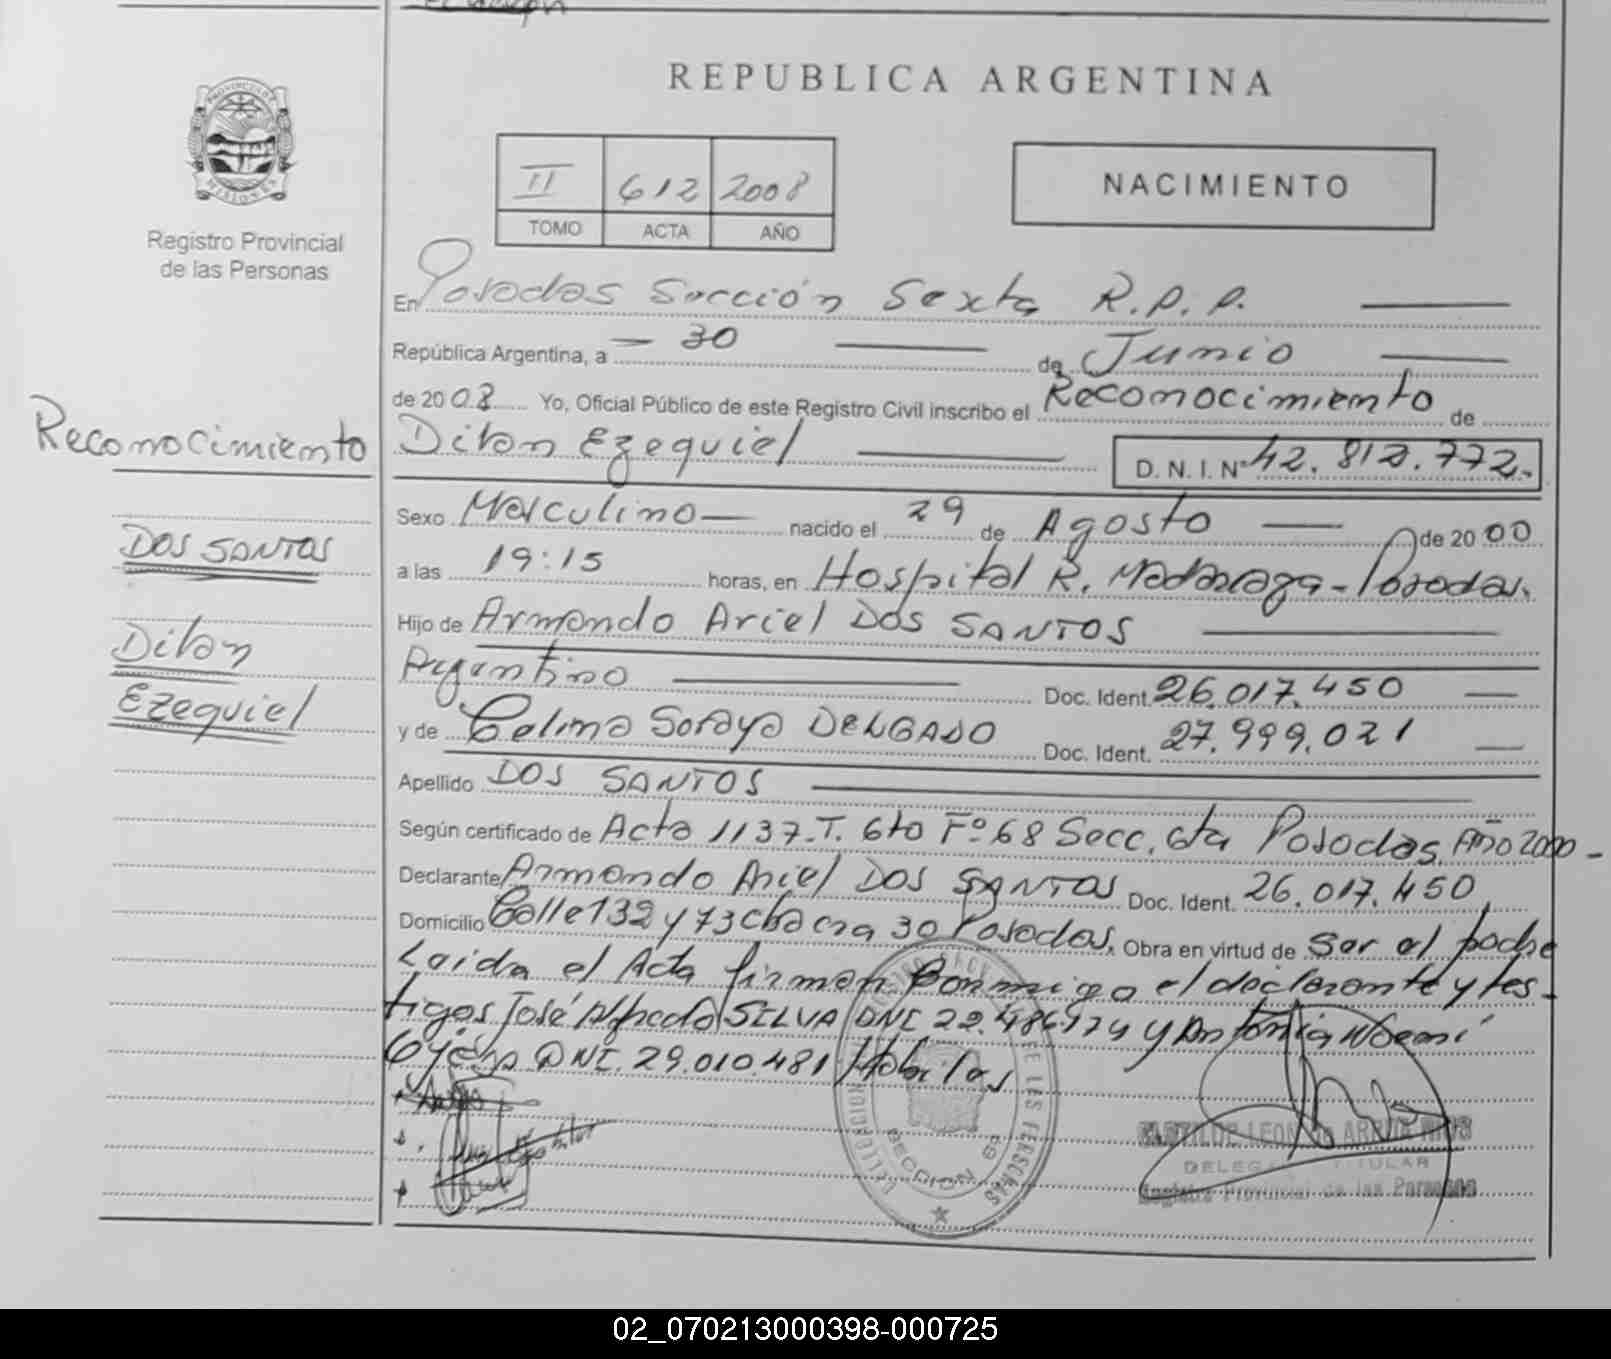 REPUBLICA ARGENTINA
PROVINCIA DE
MISIONES
Registro Provincial
de las Personas
II 612 2008
TOMO ACTA AÑO
NACIMIENTO
En Posadas Sección Sexta R.P.P.
República Argentina, a 30 de Junio
de 2008 Yo, Oficial Público de este Registro Civil inscribo el Reconocimiento de
Dilan Ezequiel D.N.I. Nº 42.812.772.-
Reconocimiento
DOS SANTOS
Dilan
Ezequiel
Sexo Masculino nacido el 29 de Agosto de 2000
a las 19:15 horas, en Hospital R. Madariaga - Posadas.
Hijo de Armando Ariel DOS SANTOS
Argentino Doc. Ident. 26.017.450
y de Celima Soraya DELGADO Doc. Ident. 27.999.021
Apellido DOS SANTOS
Según certificado de Acta 1137-T. 6to Fº 68 Secc. 6ta Posadas Año 2000-
Declarante Armando Ariel DOS SANTOS Doc. Ident. 26.017.450
Domicilio Calle 132 y 73 chacra 30 Posadas. Obra en virtud de Ser el padre
Leida el Acta firman conmigo el declarante y tes-
tigos José Alfredo SILVA DNI 22.486.174 y Antonia Noemí
DNI. 29.010.481 Habiles
SECCION 6ª
DE LAS PERSONAS
DELEGADA TITULAR
Registro Provincial de las Personas
02_070213000398-000725